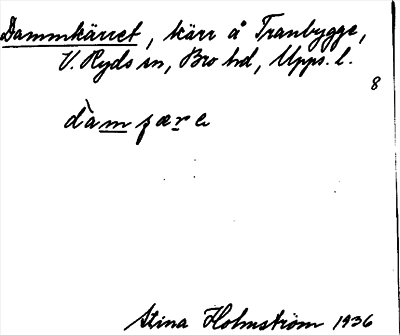 Dammkärret, kärr å Tranbygge,
V. Ryds sn, Bro hd, Upps. l.
8
dàmʃære
Stina Holmström 1936